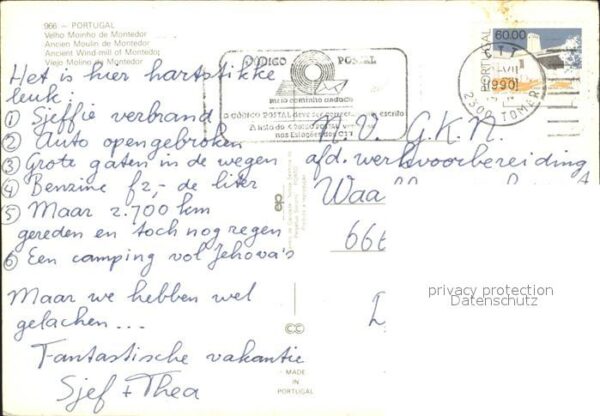 966 – PORTUGAL
Velho Moinho de Montedor
Ancien Moulin de Montedor
Ancient Wind-mill of Montedor
Viejo Molino de Montedor
Het is hier hartstikke
leuk:
① Sjeffie verbrand
② Auto opengebroken
③ Grote gaten in de wegen
④ Benzine f2,- de liter
⑤ Maar 2.700 km
gereden en toch nog regen
⑥ Een camping vol Jehova's
Maar we hebben wel
gelachen ...
Fantastische vakantie
Sjef + Thea
CÓDIGO POSTAL
MEIO CAMINHO ANDADO
O CÓDIGO POSTAL DEVE SER escrito
A lista do CÓDIGO POSTAL
nas Estações dos CTT
PORTUGAL
60.00
CTT
1990
2300 TOMAR
N.V. G.K.N.
afd. werkvoorbereiding
Waa
66
privacy protection
Datenschutz
MADE
IN
PORTUGAL